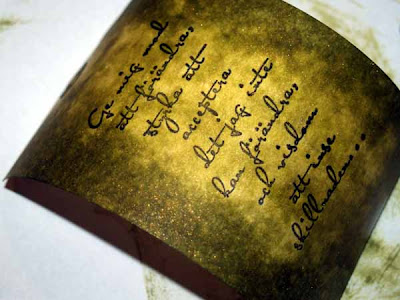 Ge mig mod
att förändra,
styrka att
acceptera
det jag inte
kan förändra,
och visdom
att inse
skillnaden...